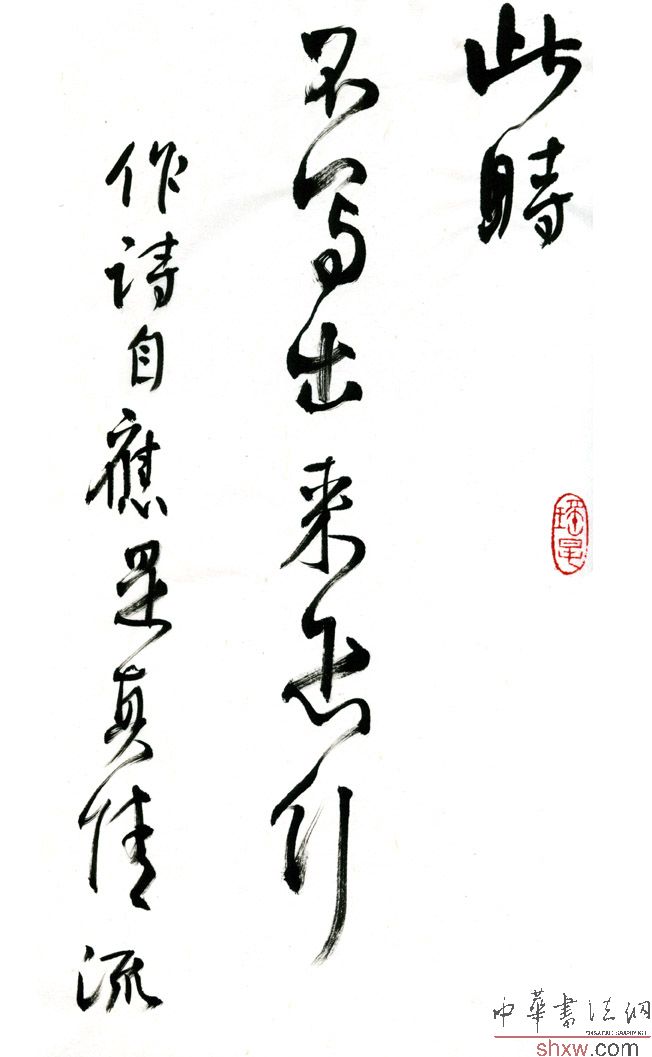 此時
不写出来怎行
作詩自應是真情流
中華書法網
shxw.com